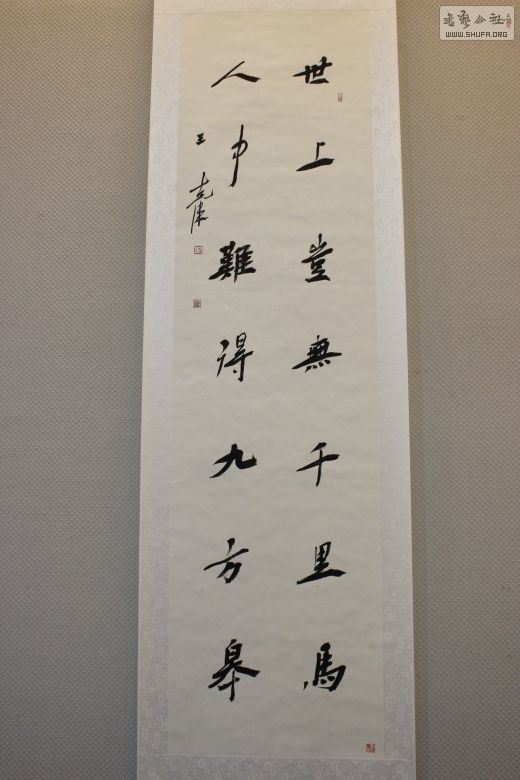 世上豈無千里馬
人中難得九方皋
王
書藝公社
WWW.SHUFA.ORG